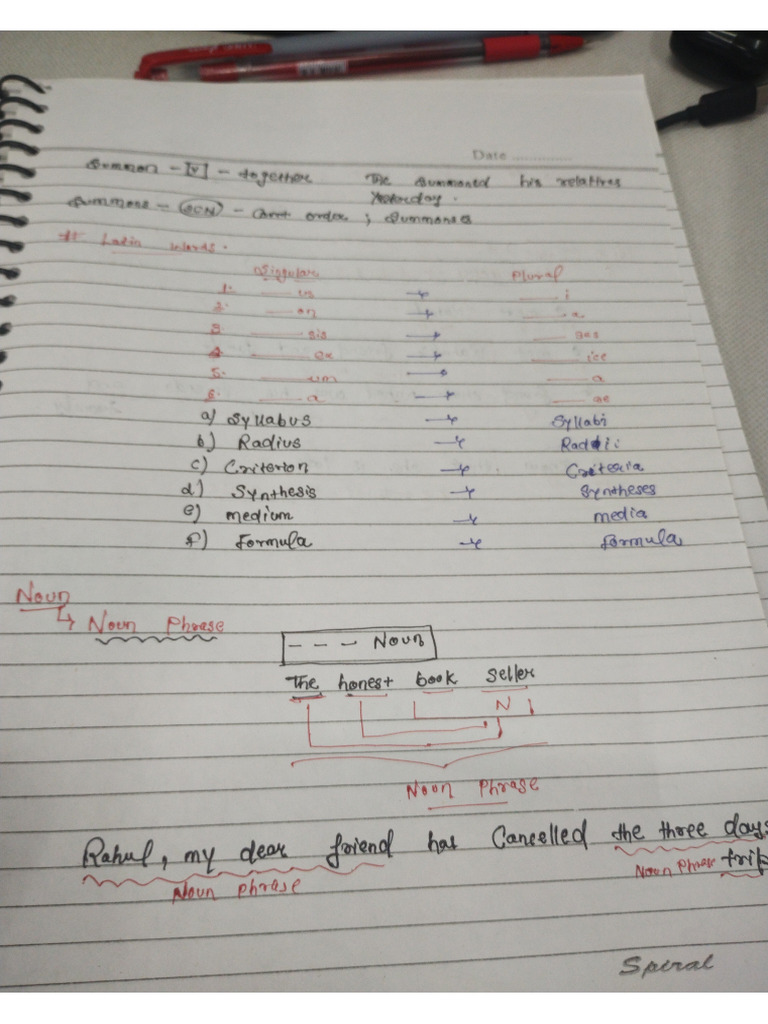 Date ..............
Summon - [V] - together The summoned his relatives
Yesterday.
Summons - (SCN) - Court order ; Summonses
# Latin words.
Singular Plural
1. ___ us → ___ i
2. ___ on → ___ a
3. ___ sis → ___ ses
4. ___ ex → ___ ice
5. ___ um → ___ a
6. ___ a → ___ ae
a) Syllabus → Syllabi
b) Radius → Radii
c) Criterion → Criteria
d) Synthesis → Syntheses
e) medium → media
f) Formula → Formula
Noun
↳ Noun Phrase
- - - Noun
The honest book seller
N
Noun Phrase
Rahul, my dear friend has Cancelled the three days
Noun Phrase Noun Phrase trip
Spiral